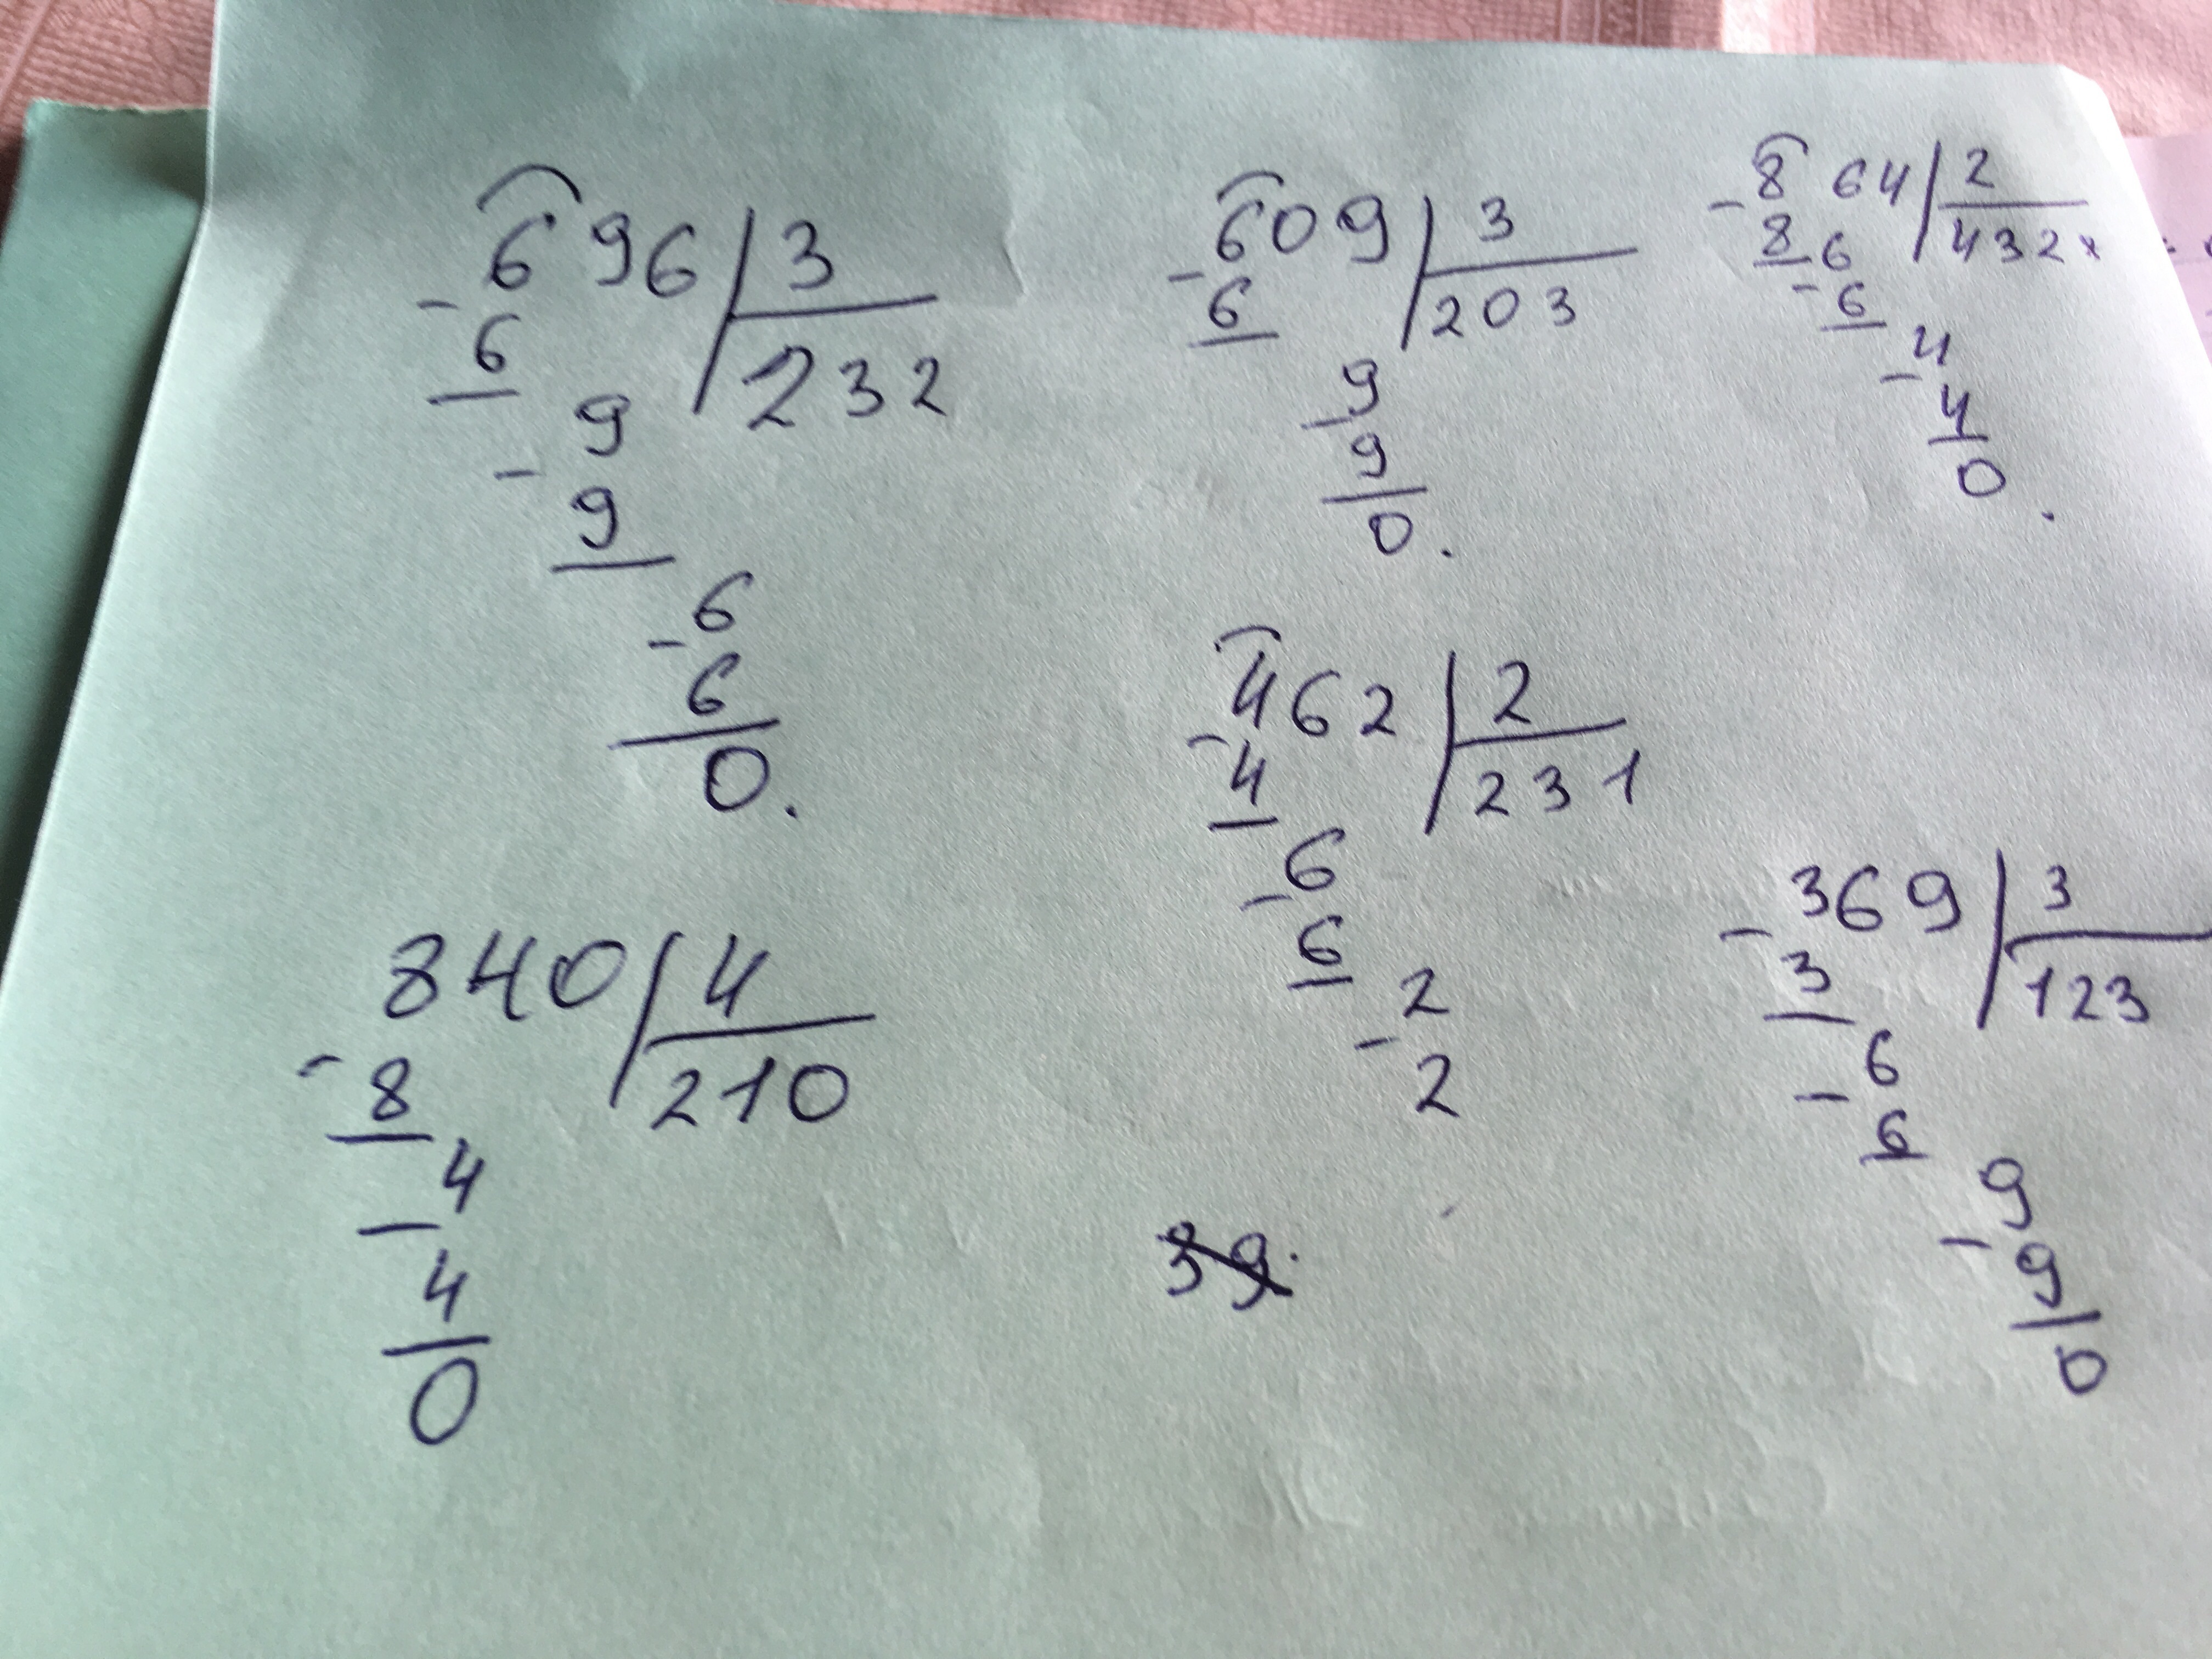 696 | 3
- 6
232
9
- 9
6
- 6
0.
609 | 3
- 6
203
9
- 9
0.
- 864 | 2
8 6
432x
- 6
4
- 4
0.
462 | 2
- 4
231
6
- 6
2
- 2
840 | 4
- 8
210
4
- 4
0
- 369 | 3
3
123
6
- 6
9
- 9
0
39.